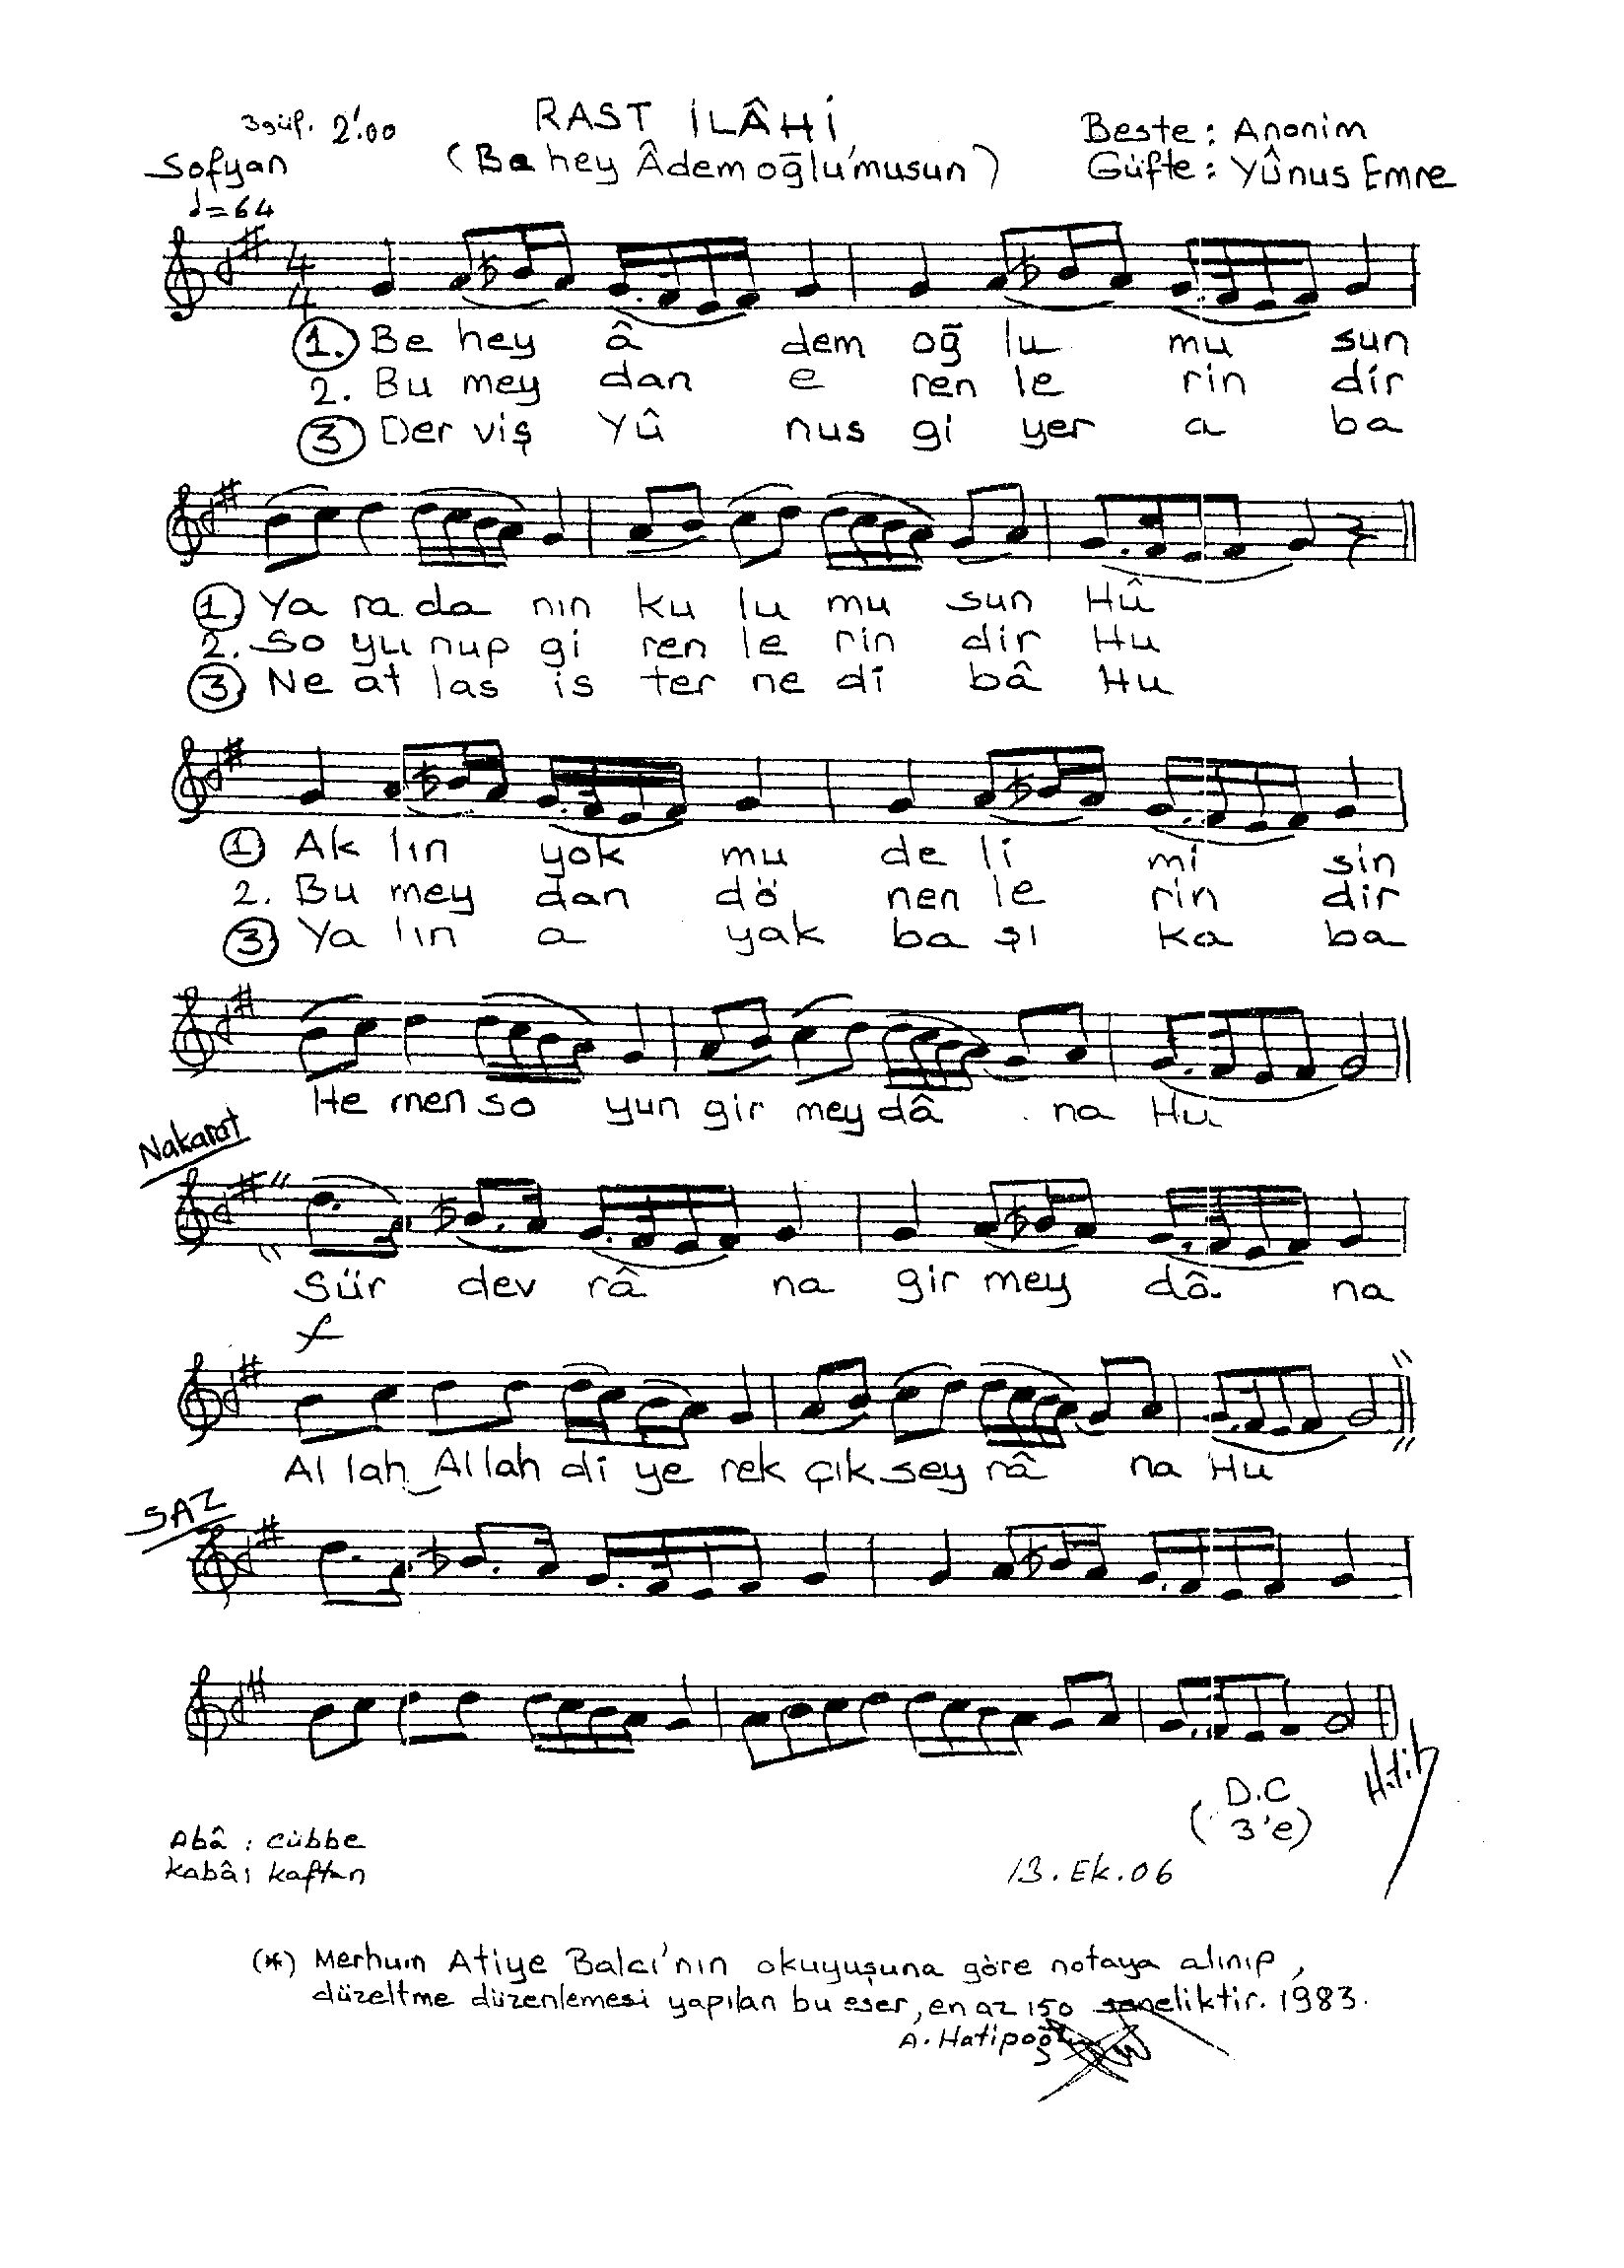 3 güf. 2'.00
RAST İLÂHİ
Beste: Anonim
Sofyan
(Be hey Âdem oğlu'musun)
Güfte: Yûnus Emre
♩=64
4
4
1. Be hey â dem oğ lu mu sun
2. Bu mey dan e ren le rin dir
3 Der viş Yû nus gi yer a ba
1. Ya ra da nın ku lu mu sun Hû
2. So yu nup gi ren le rin dir Hu
3 Ne at las is ter ne di bâ Hu
1 Ak lın yok mu de li mi sin
2. Bu mey dan dö nen le rin dir
3 Ya lın a yak ba şı ka ba
He men so yun gir mey dâ na Hu
Nakarat
Sür dev râ na gir mey dâ na
f
Al lah Al lah di ye rek çık sey râ na Hu
SAZ
D.C
(3'e)
Abâ : cübbe
Kabâ: kaftan
13.Ek.06
(*) Merhum Atiye Balcı'nın okuyuşuna göre notaya alınıp,
düzeltme düzenlemesi yapılan bu eser, en az 150 seneliktir. 1983.
A. Hatipoğlu